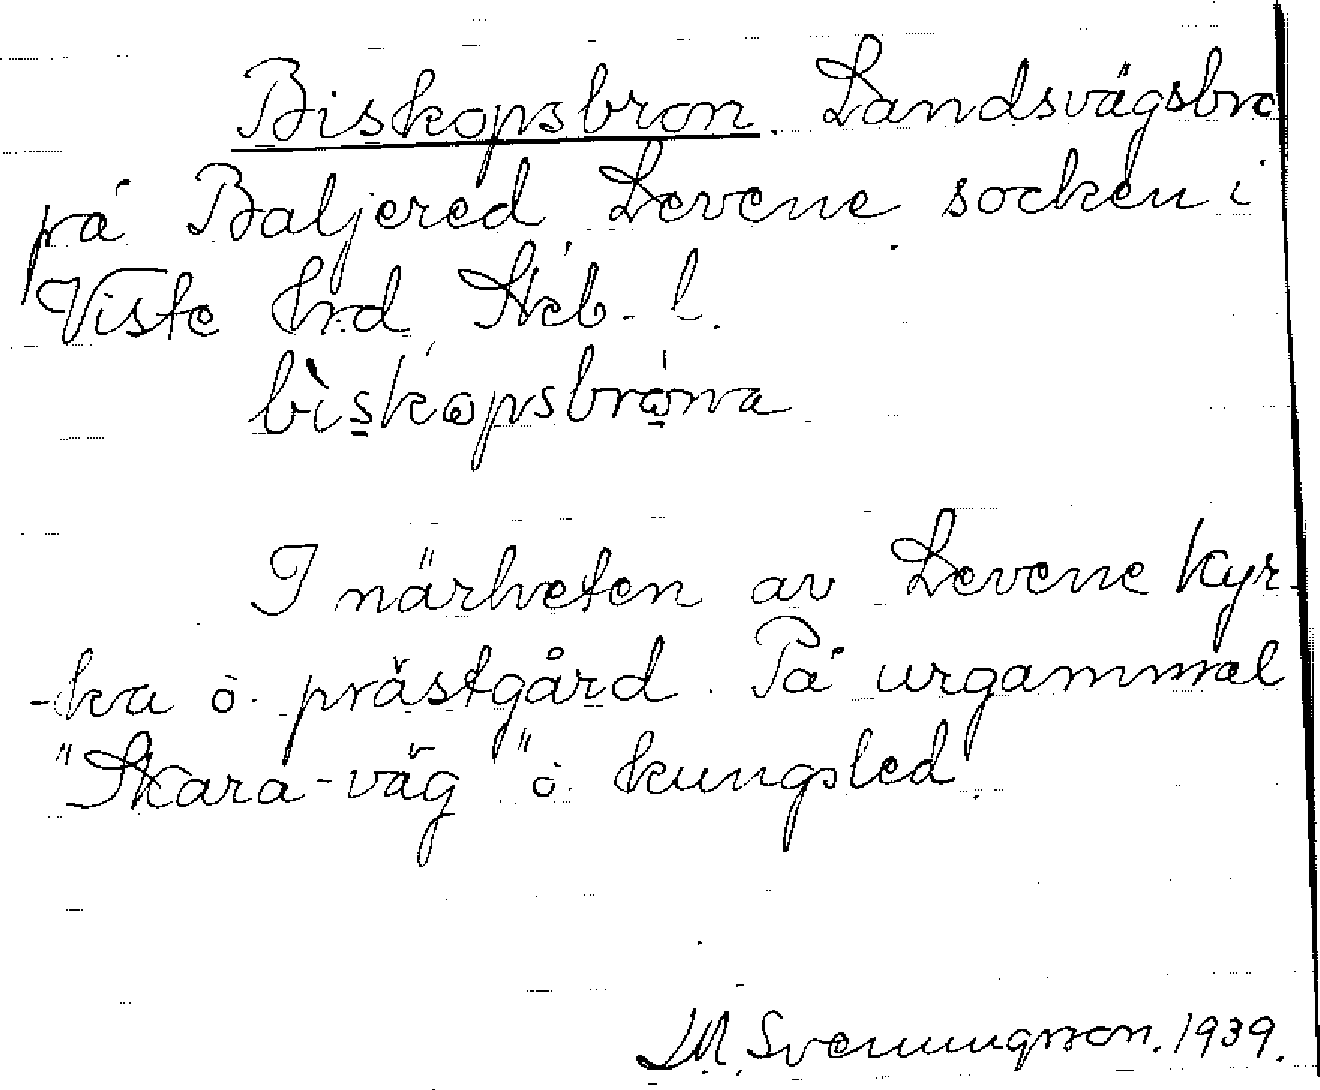 Biskopsbron. Landsvägsbro
på Baljered, Levene socken i
Viste hrd, Skb. l.
bìskopsbróna
I närheten av Levene kyr-
-ka o. prästgård. På urgammal
"Skara-väg" o. kungsled.
Svenungsson. 1939.